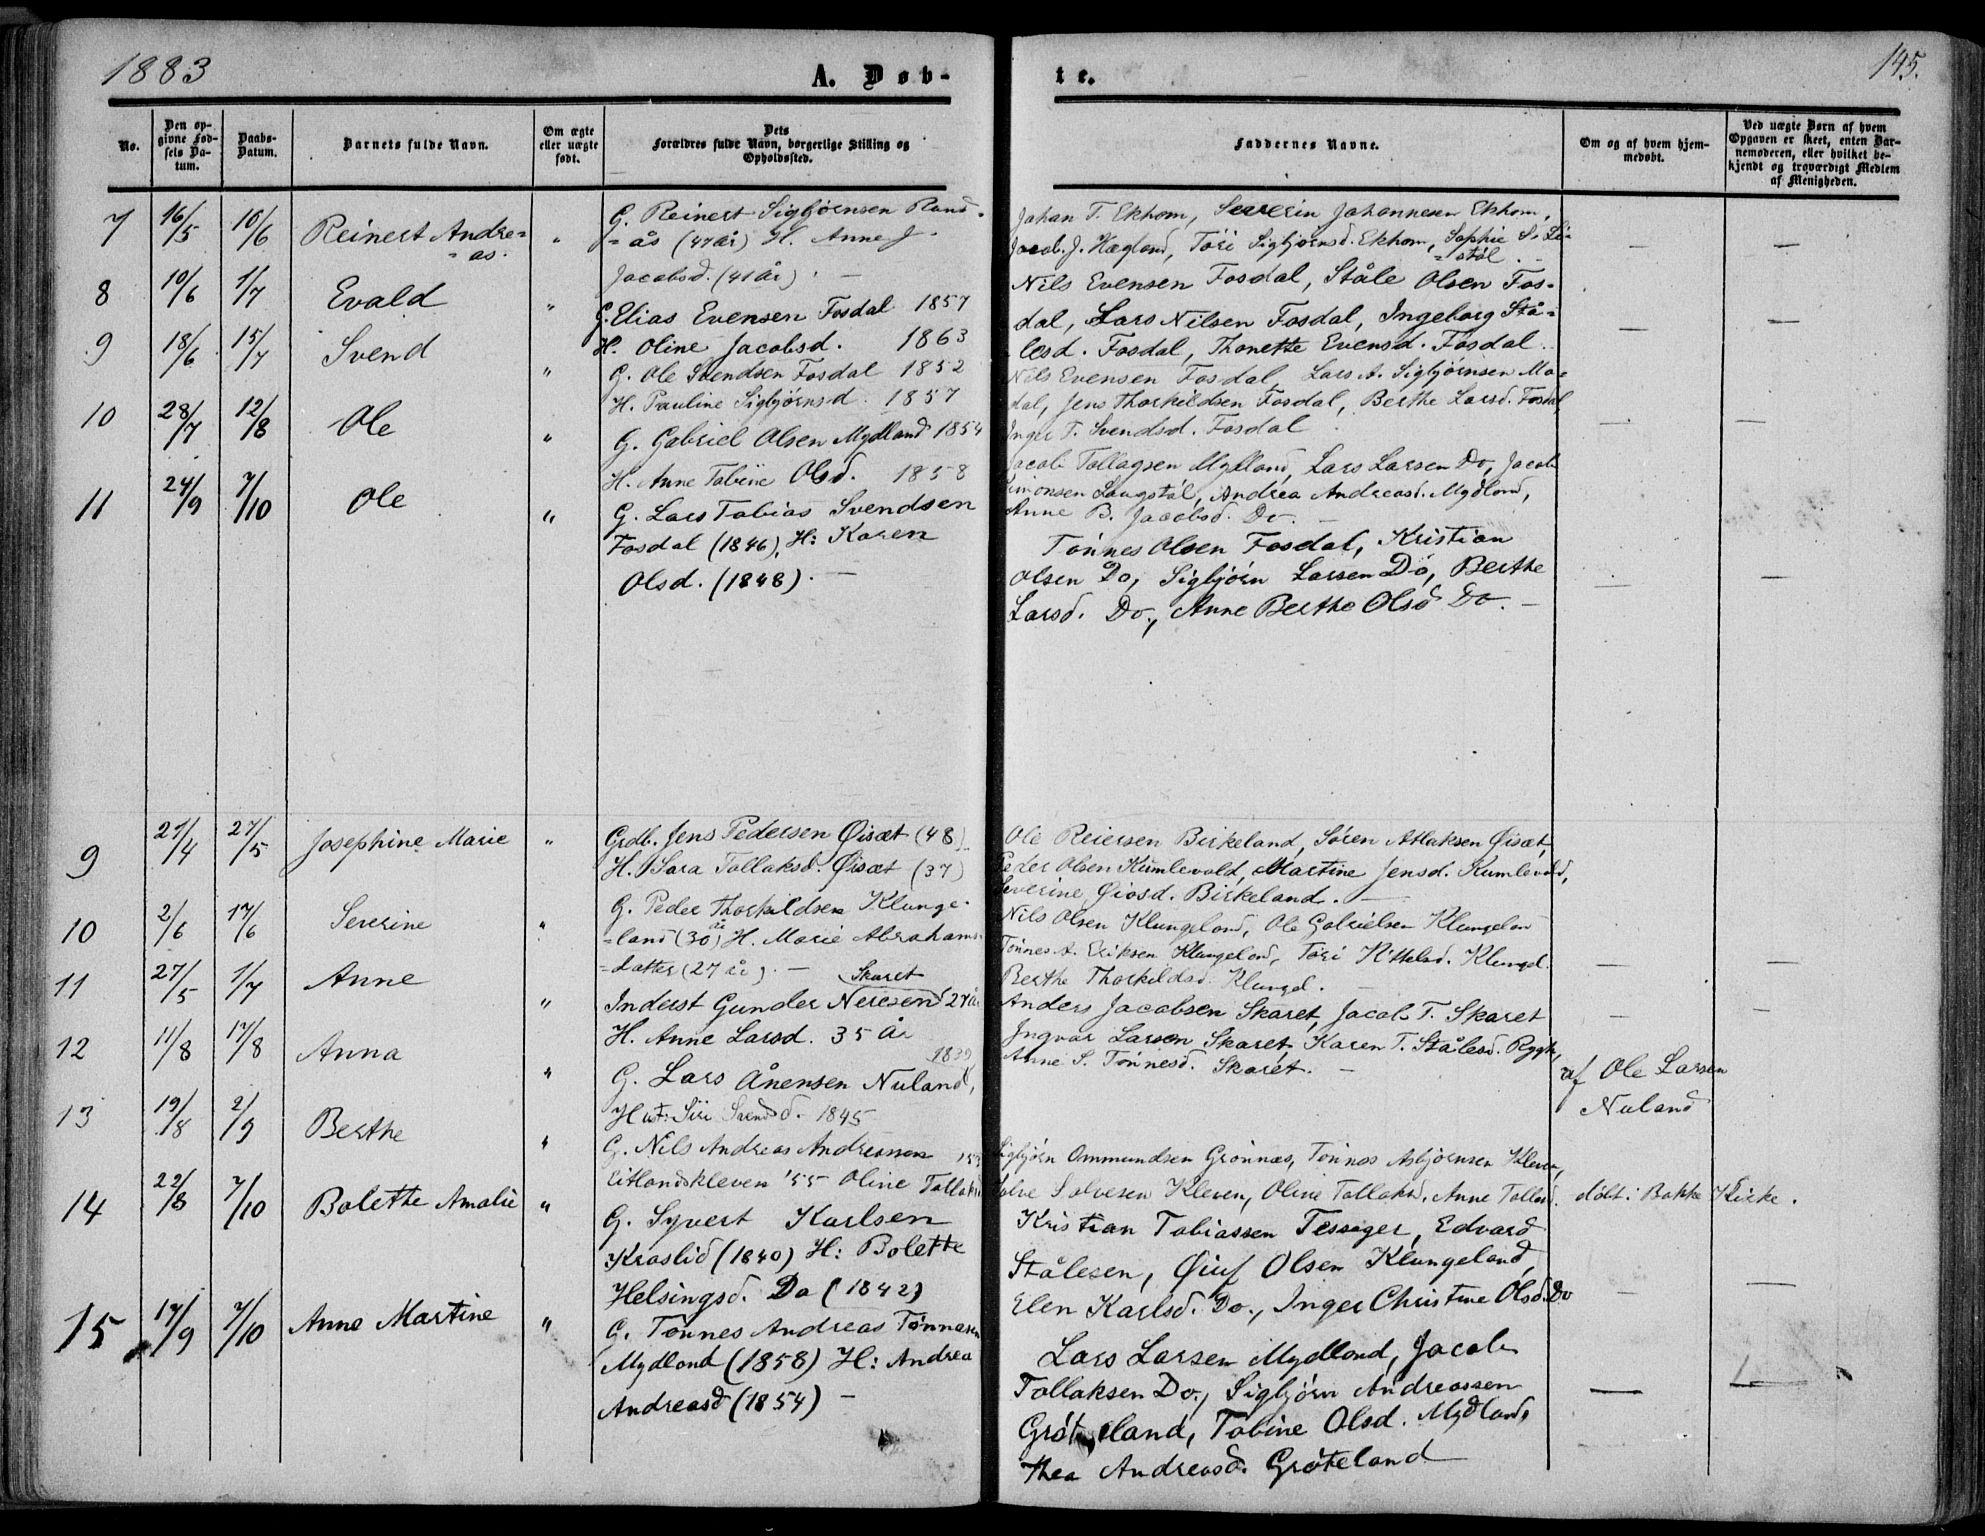 1883
A. Døb-
te.
145.
No.
Den op-
givne Fød-
sels Da-
tum.
Daabs-
Datum.
Barnets fulde Navn.
Om ægte
eller uægte
født.
Dets
Forældres fulde Navn, borgerlige Stilling og
Opholdssted.
Faddernes Navne.
Om og af hvem hjem-
medøbt.
Ved uægte Børn af hvem
Opgaven er skeet, enten Bar-
nemoderen, eller hvilket be-
kjendt og troværdigt Medlem
af Menigheden.
7 16/5 10/6 Reinert Andre=
= as.
"
G. Reinert Sigbjørnsen Rand.
= ås (47 år) H. Anne J.
Jacobsd. (41 år). —
Johan T. Ekhom, Severin Johannesen Ekhom,
Jacob J. Hægland, Tori Sigbjørnsd. Ekhom, Sophie S.
— —
8 10/6 1/7 Evald "
G. Elias Evensen Fosdal 1857
H. Oline Jacobsd. 1863
Nils Evensen Fosdal, Ståle Olsen Fos-
dal, Lars Nilsen Fosdal, Ingeborg Stå=
lesd. Fosdal, Thonette Evensd. Fosdal.
— —
9 18/6 15/7 Svend "
G. Ole Svendsen Fosdal 1852
H. Pauline Sigbjørnsd. 1857
Nils Evensen Fosdal, Lars A. Sigbjørnsen Mo-
dal, Jens Thorkildsen Fosdal, Berthe Larsd. Fosdal
Inger T. Svendsd. Fosdal
— —
10 28/7 12/8 Ole "
G. Gabriel Olsen Mydland 1854
H. Anne Tobine Olsd. 1858
Jacob Tollagsen Mydland, Lars Larsen Do, Jacob
Simonsen Langstøl, Andrea Andreasd. Mydland,
Anne B. Jacobsd. Do. —
11 24/9 7/10 Ole "
G. Lars Tobias Svendsen
Fosdal (1846), H: Karen
Olsd. (1848). —
Tønnes Olsen Fosdal, Kristian
Olsen Do, Sigbjørn Larsen Do, Berthe
Larsd. Do., Anne Berthe Olsd Do. —
— —
9 21/4 27/5 Josephine Marie "
Grdb. Jens Pedersen Øisæt (48)
H. Sara Tollaksd. Øisæt (37)
Ole Reiersen Birkeland, Søren Atlaksen Øisæt,
Peder Olsen Kumlevold, Martine Jensd. Kumlevold,
Severine Øiosd. Birkeland. —
10 2/6 17/6 Severine "
G. Peder Thorkildsen Klunge-
=land (30 år) H. Marie Abrahams-
=datter (27 år). —
Nils Olsen Klungeland, Ole Gabrielsen Klungelan
Tønnes A. Eriksen Klungeland, Tori Kittelsd. Klungl.
Berthe Thorkildsd. Klungl. —
— —
11 27/5 1/7 Anne "
Skaret
Inderst Gunder Neresen 27 år
H. Anne Larsd. 35 år
Anders Jacobsen Skaret, Jacob T. Skaret
Ingvar Larsen Skaret, Karen T. Stålesd.
Anne S. Tønnesd. Skaret. —
— —
12 11/8 17/8 Anna "
1839
G. Lars Ånensen Nuland,
Hust: Siri Svendsd. 1845
af Ole Larsen
Nuland
13 19/8 2/9 Berthe "
G. Nils Andreas Andreassen
Eitlandskleven '55 Oline Tollaksd
Sigbjørn Ommundsen Grønnæs, Tønnes Asbjørnsen Kleven,
Salve Salvesen Kleven, Oline Tollaksd. Anne Tollad.
døbt i Bakke Kirke.
14 22/8 7/10 Bolette Amalie "
G. Syvert Karlsen
Kraslid (1840) H: Bolette
Helsingsd. Do (1842)
Kristian Tobiassen Tessager, Edvard
Stålesen, Øiuf Olsen Klungeland,
Elen Karlsd. Do., Inger Christine Olsd. Do
— —
15 17/9 7/10 Anne Martine "
G. Tønnes Andreas Tønnesen
Mydland (1858) H: Andrea
Andreasd (1854) —
Lars Larsen Mydland, Jacob
Tollaksen Do., Sigbjørn Andreassen
Grøteland, Tobine Olsd. Mydland,
Thea Andreasd. Grøteland
— —